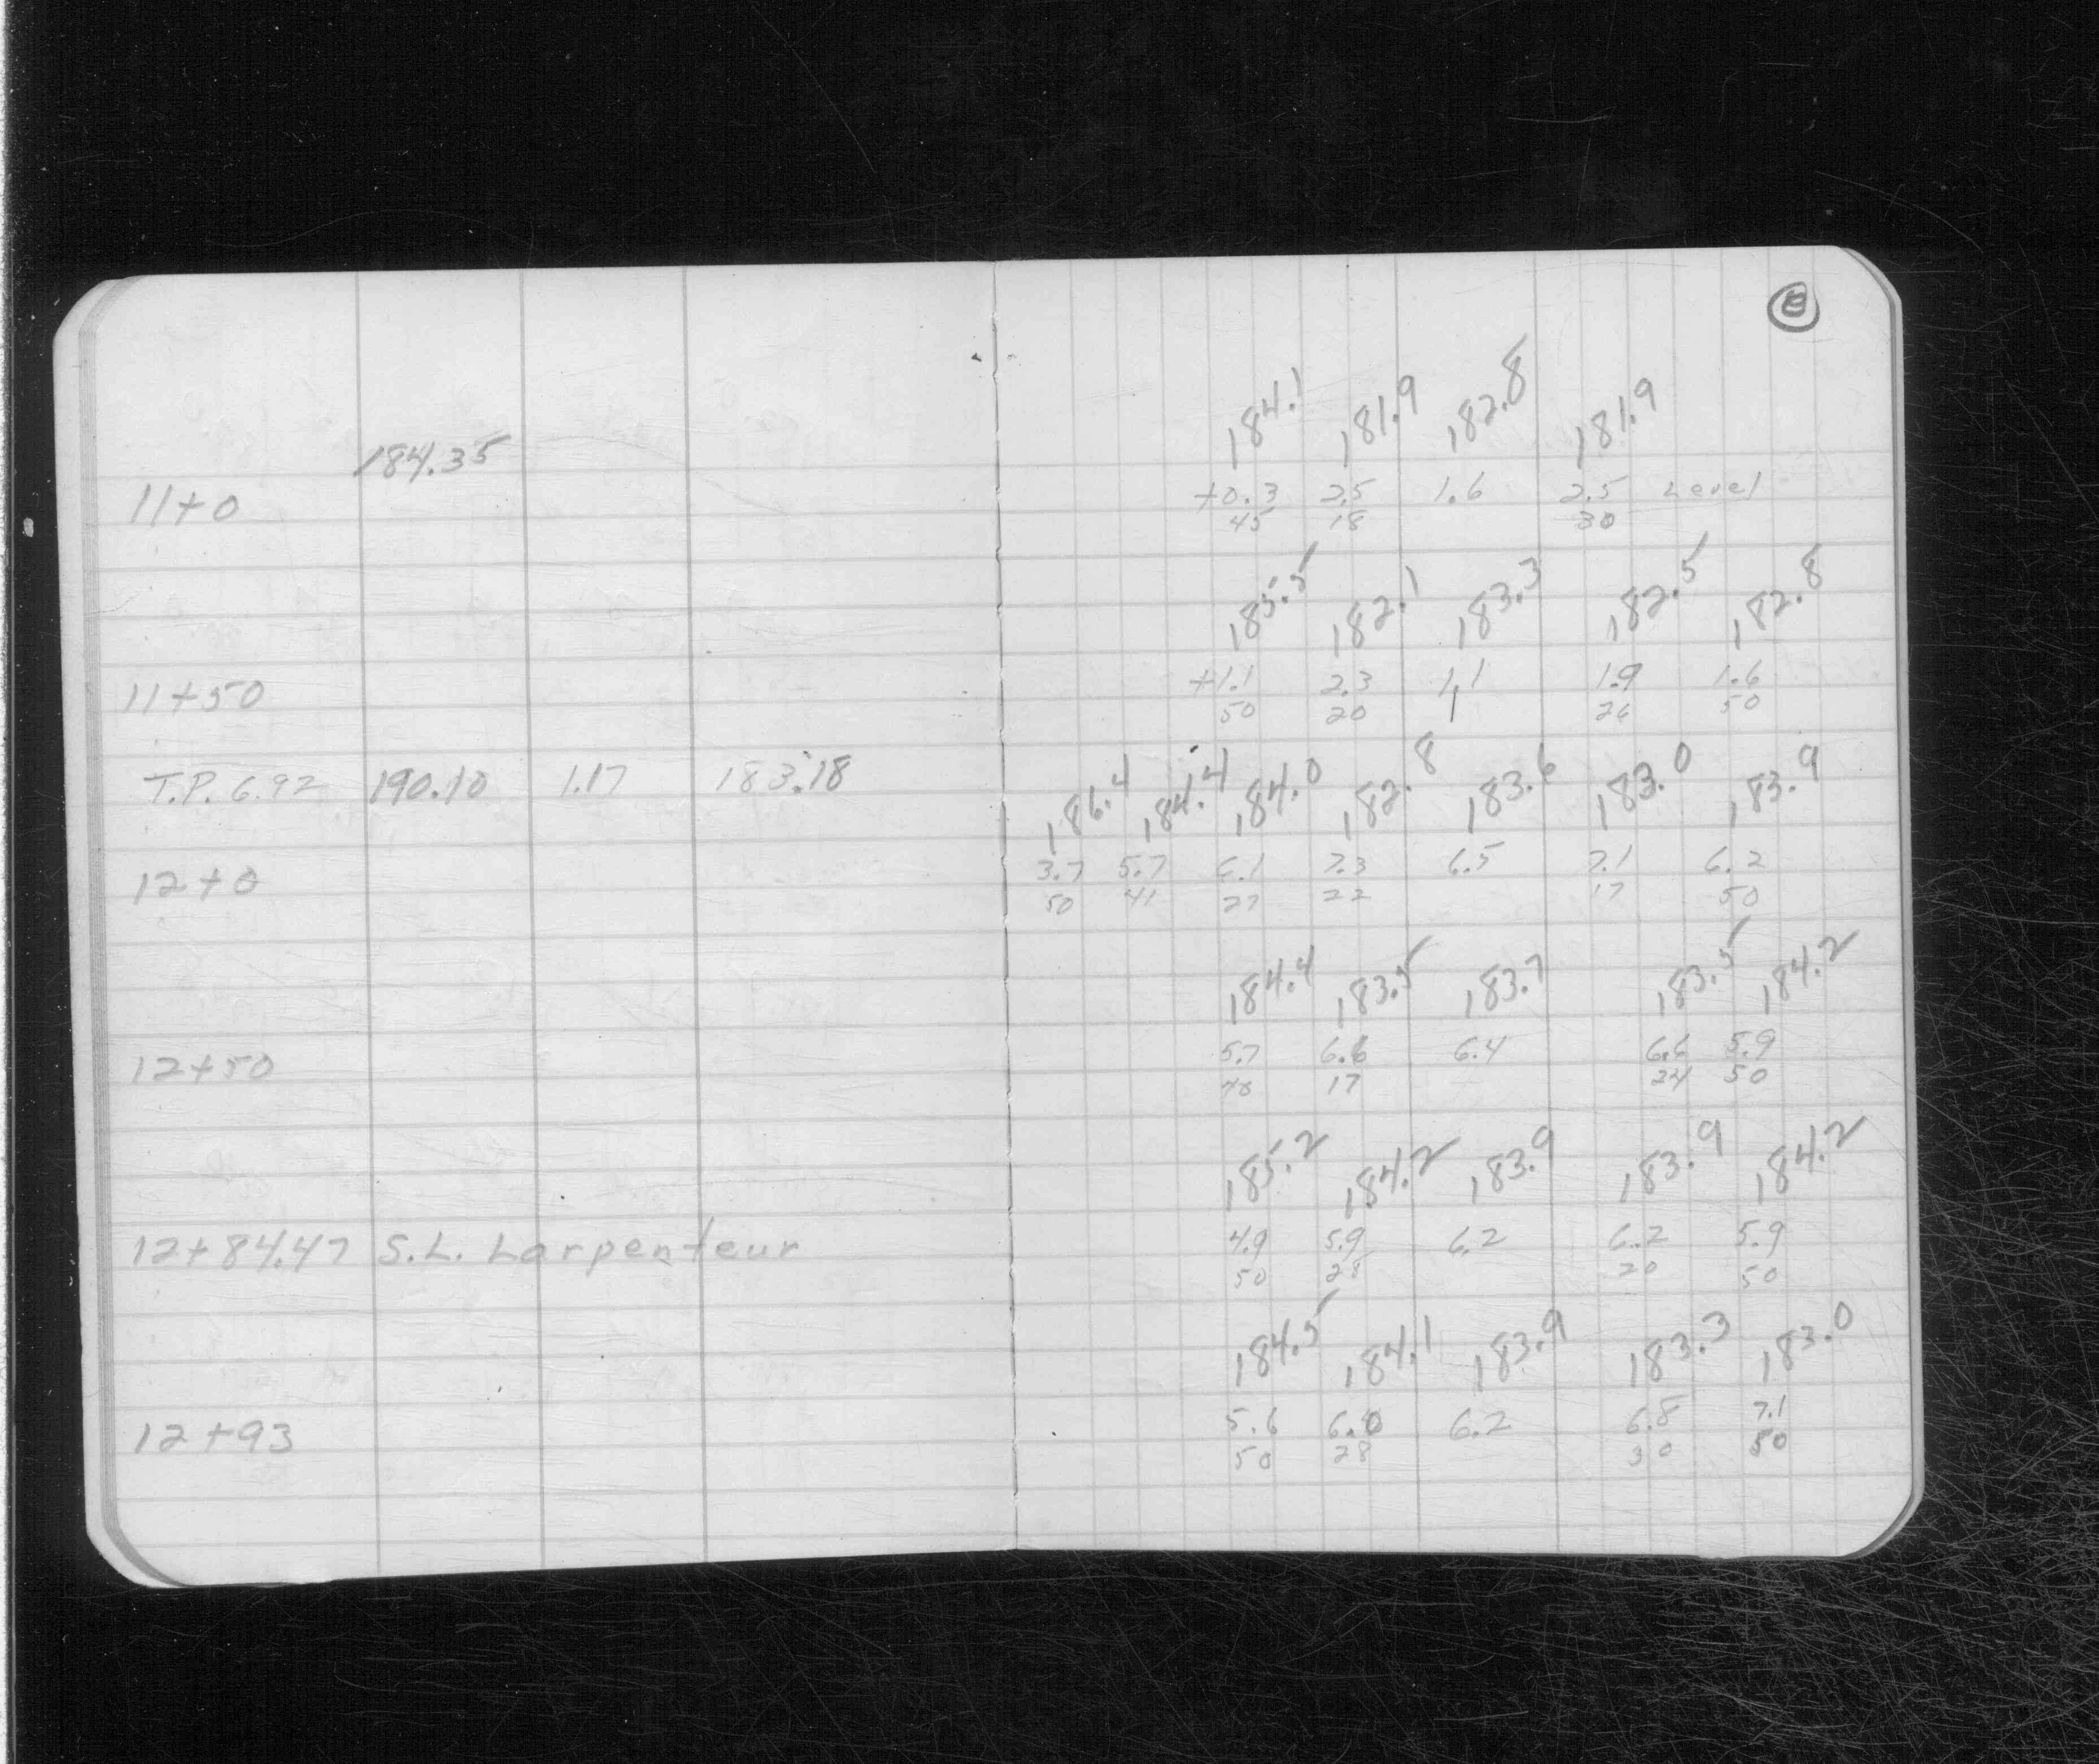 184.1 181.9 182.8 181.9
184.35
11+0 +0.3 2.5 1.6 2.5 Level
45 18 30
185.5 182.1 183.3 182.5 182.8
11+50 +1.1 2.3 1.1 1.9 1.6
50 20 26 50
T.P. 6.92 190.10 1.17 183.18
186.4 184.4 184.0 182.8 183.6 183.0 183.9
12+0 3.7 5.7 6.1 7.3 6.5 7.1 6.2
50 41 27 22 17 50
184.4 183.5 183.7 183.5 184.2
12+50 5.7 6.6 6.4 6.6 5.9
17 24 50
185.2 184.2 183.9 183.9 184.2
12+84.47 S.L. Larpenteur 4.9 5.9 6.2 6.2 5.9
50 20 50
184.5 184.1 183.9 183.3 183.0
12+93 5.6 6.0 6.2 6.8 7.1
50 28 30 50